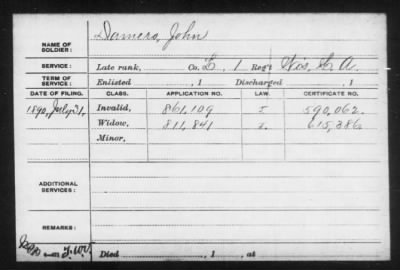 Damero, John
NAME OF SOLDIER:
SERVICE: Late rank, Co. L, 1 Reg't Wis. H. A.
TERM OF SERVICE: Enlisted , 1 Discharged , 1
DATE OF FILING. CLASS. APPLICATION NO. LAW. CERTIFICATE NO.
1890, July 21, Invalid, 861,109 590,062.
Widow, 811,841 615,386
Minor,
ADDITIONAL SERVICES:
REMARKS:
Died , 1 , at